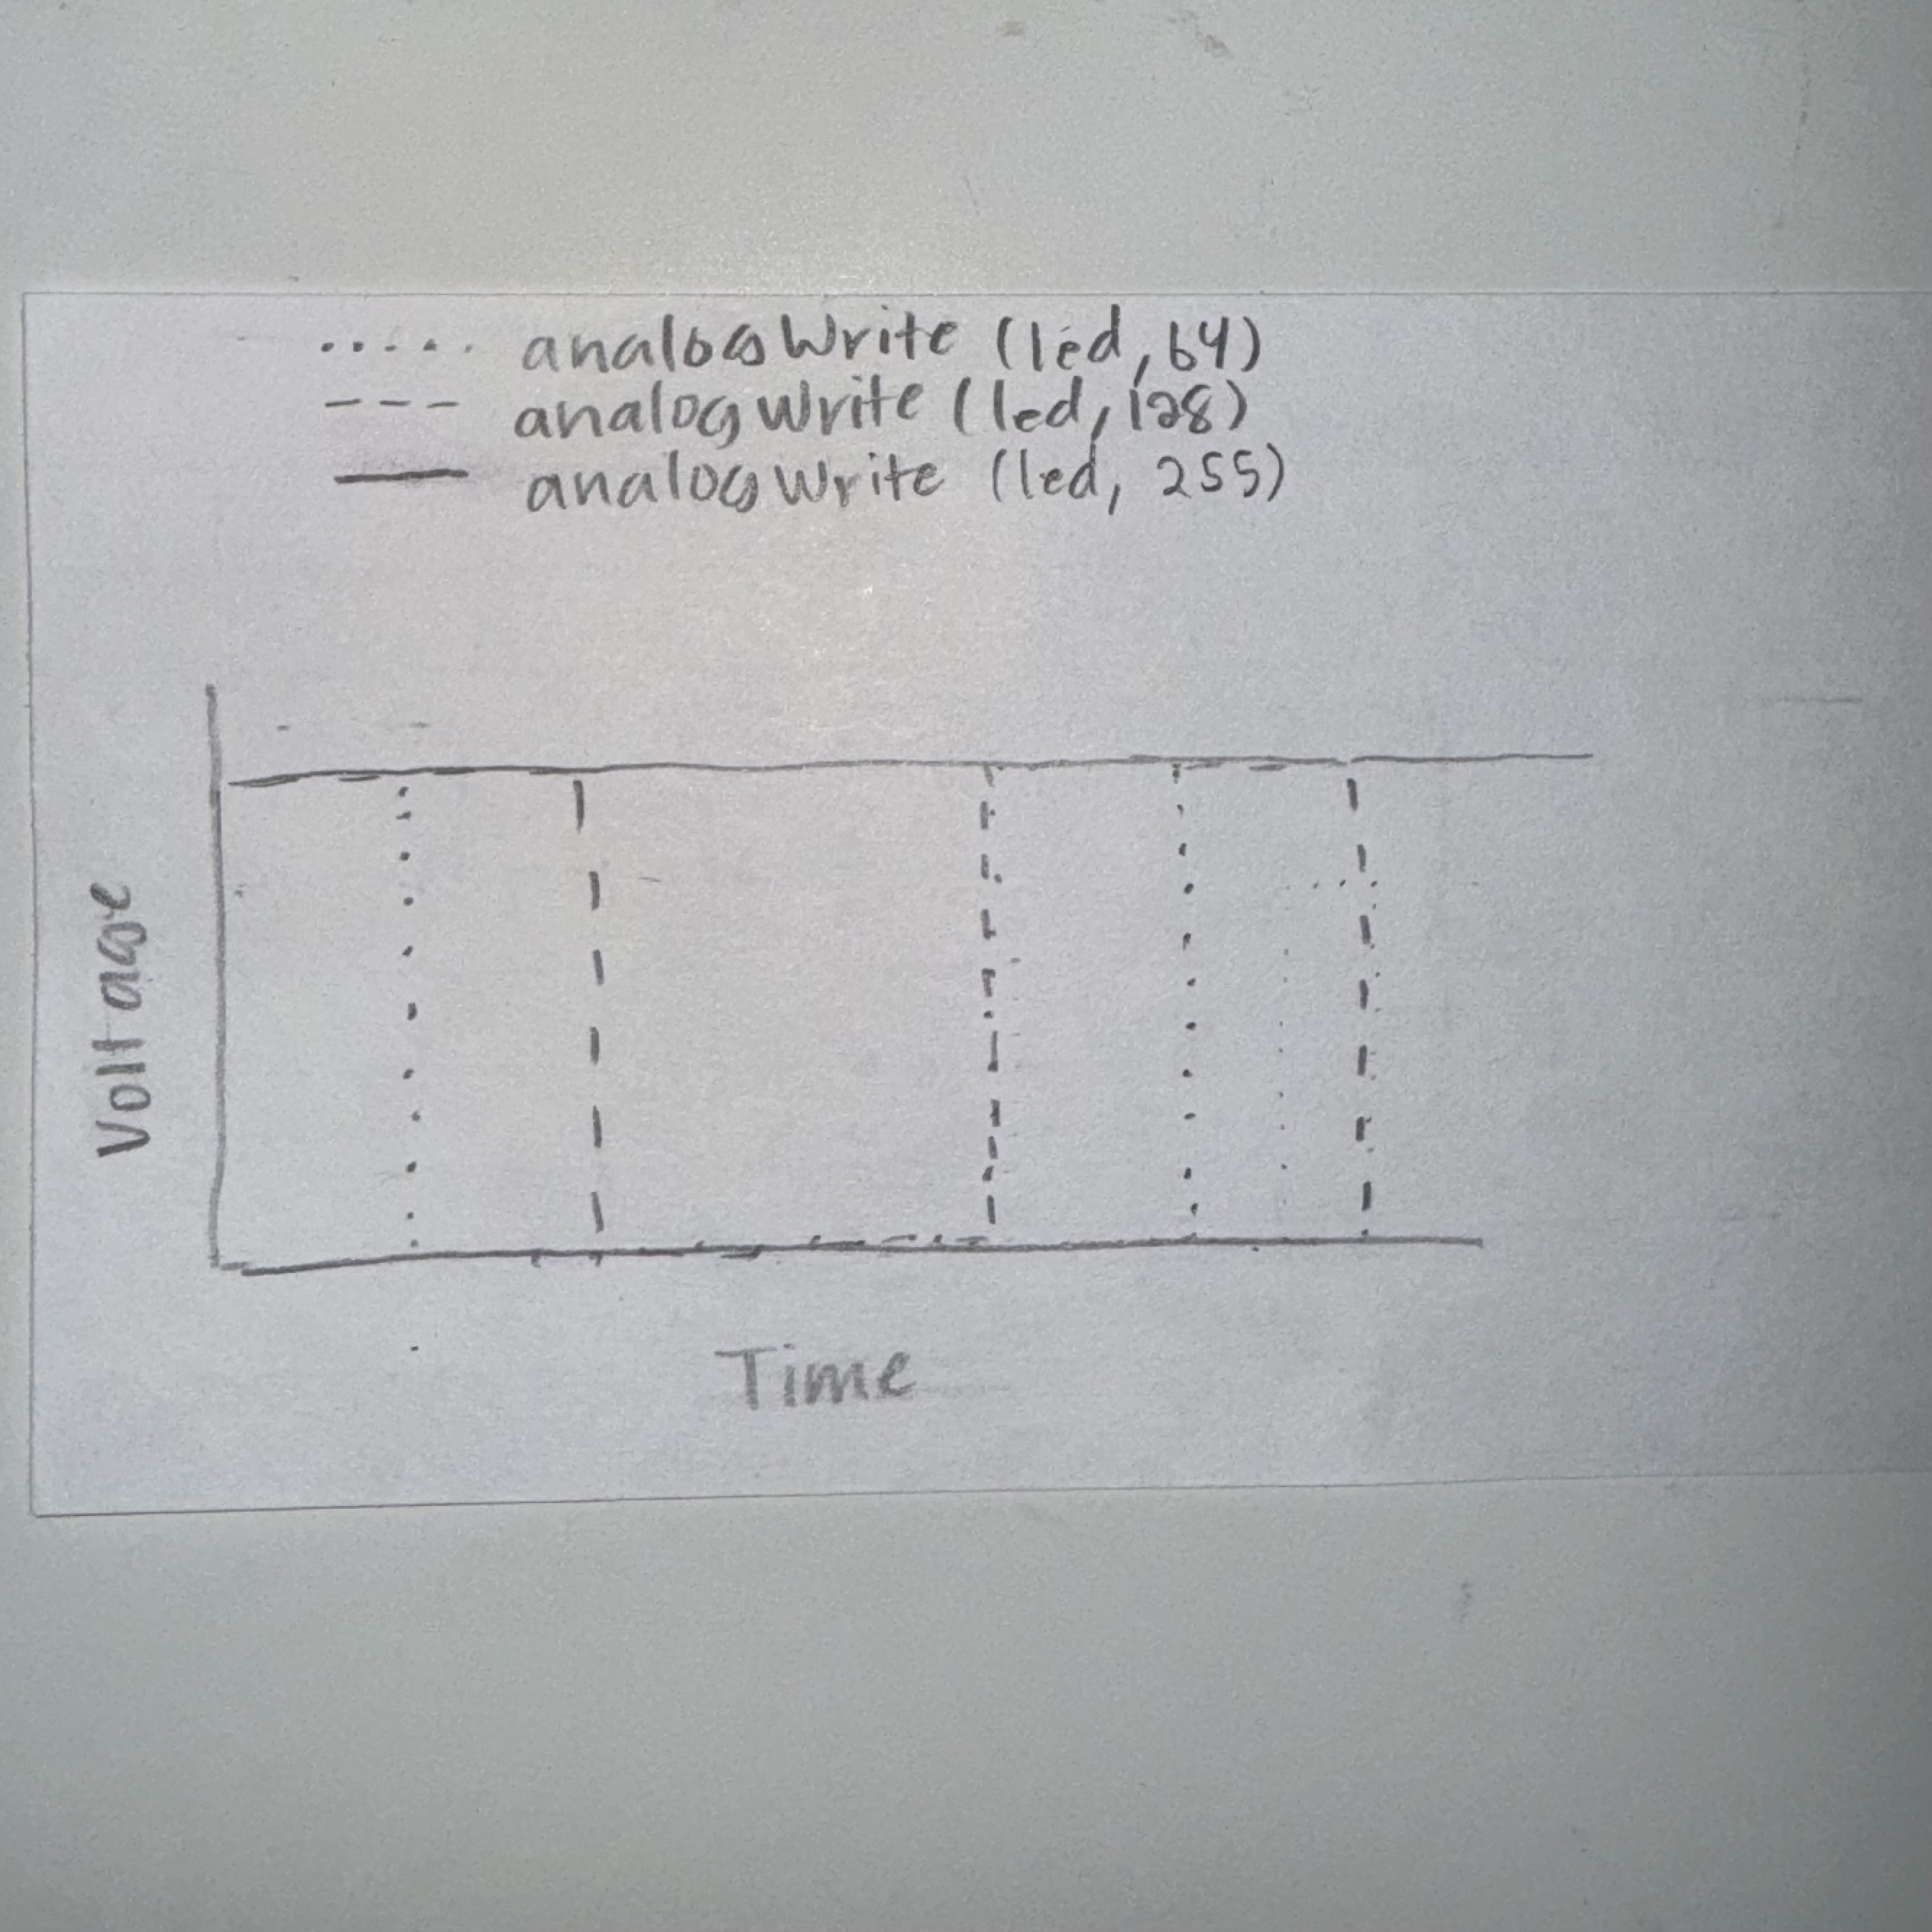 analogWrite (led, 64)
analogWrite (led, 128)
analogWrite (led, 255)
Voltage
Time